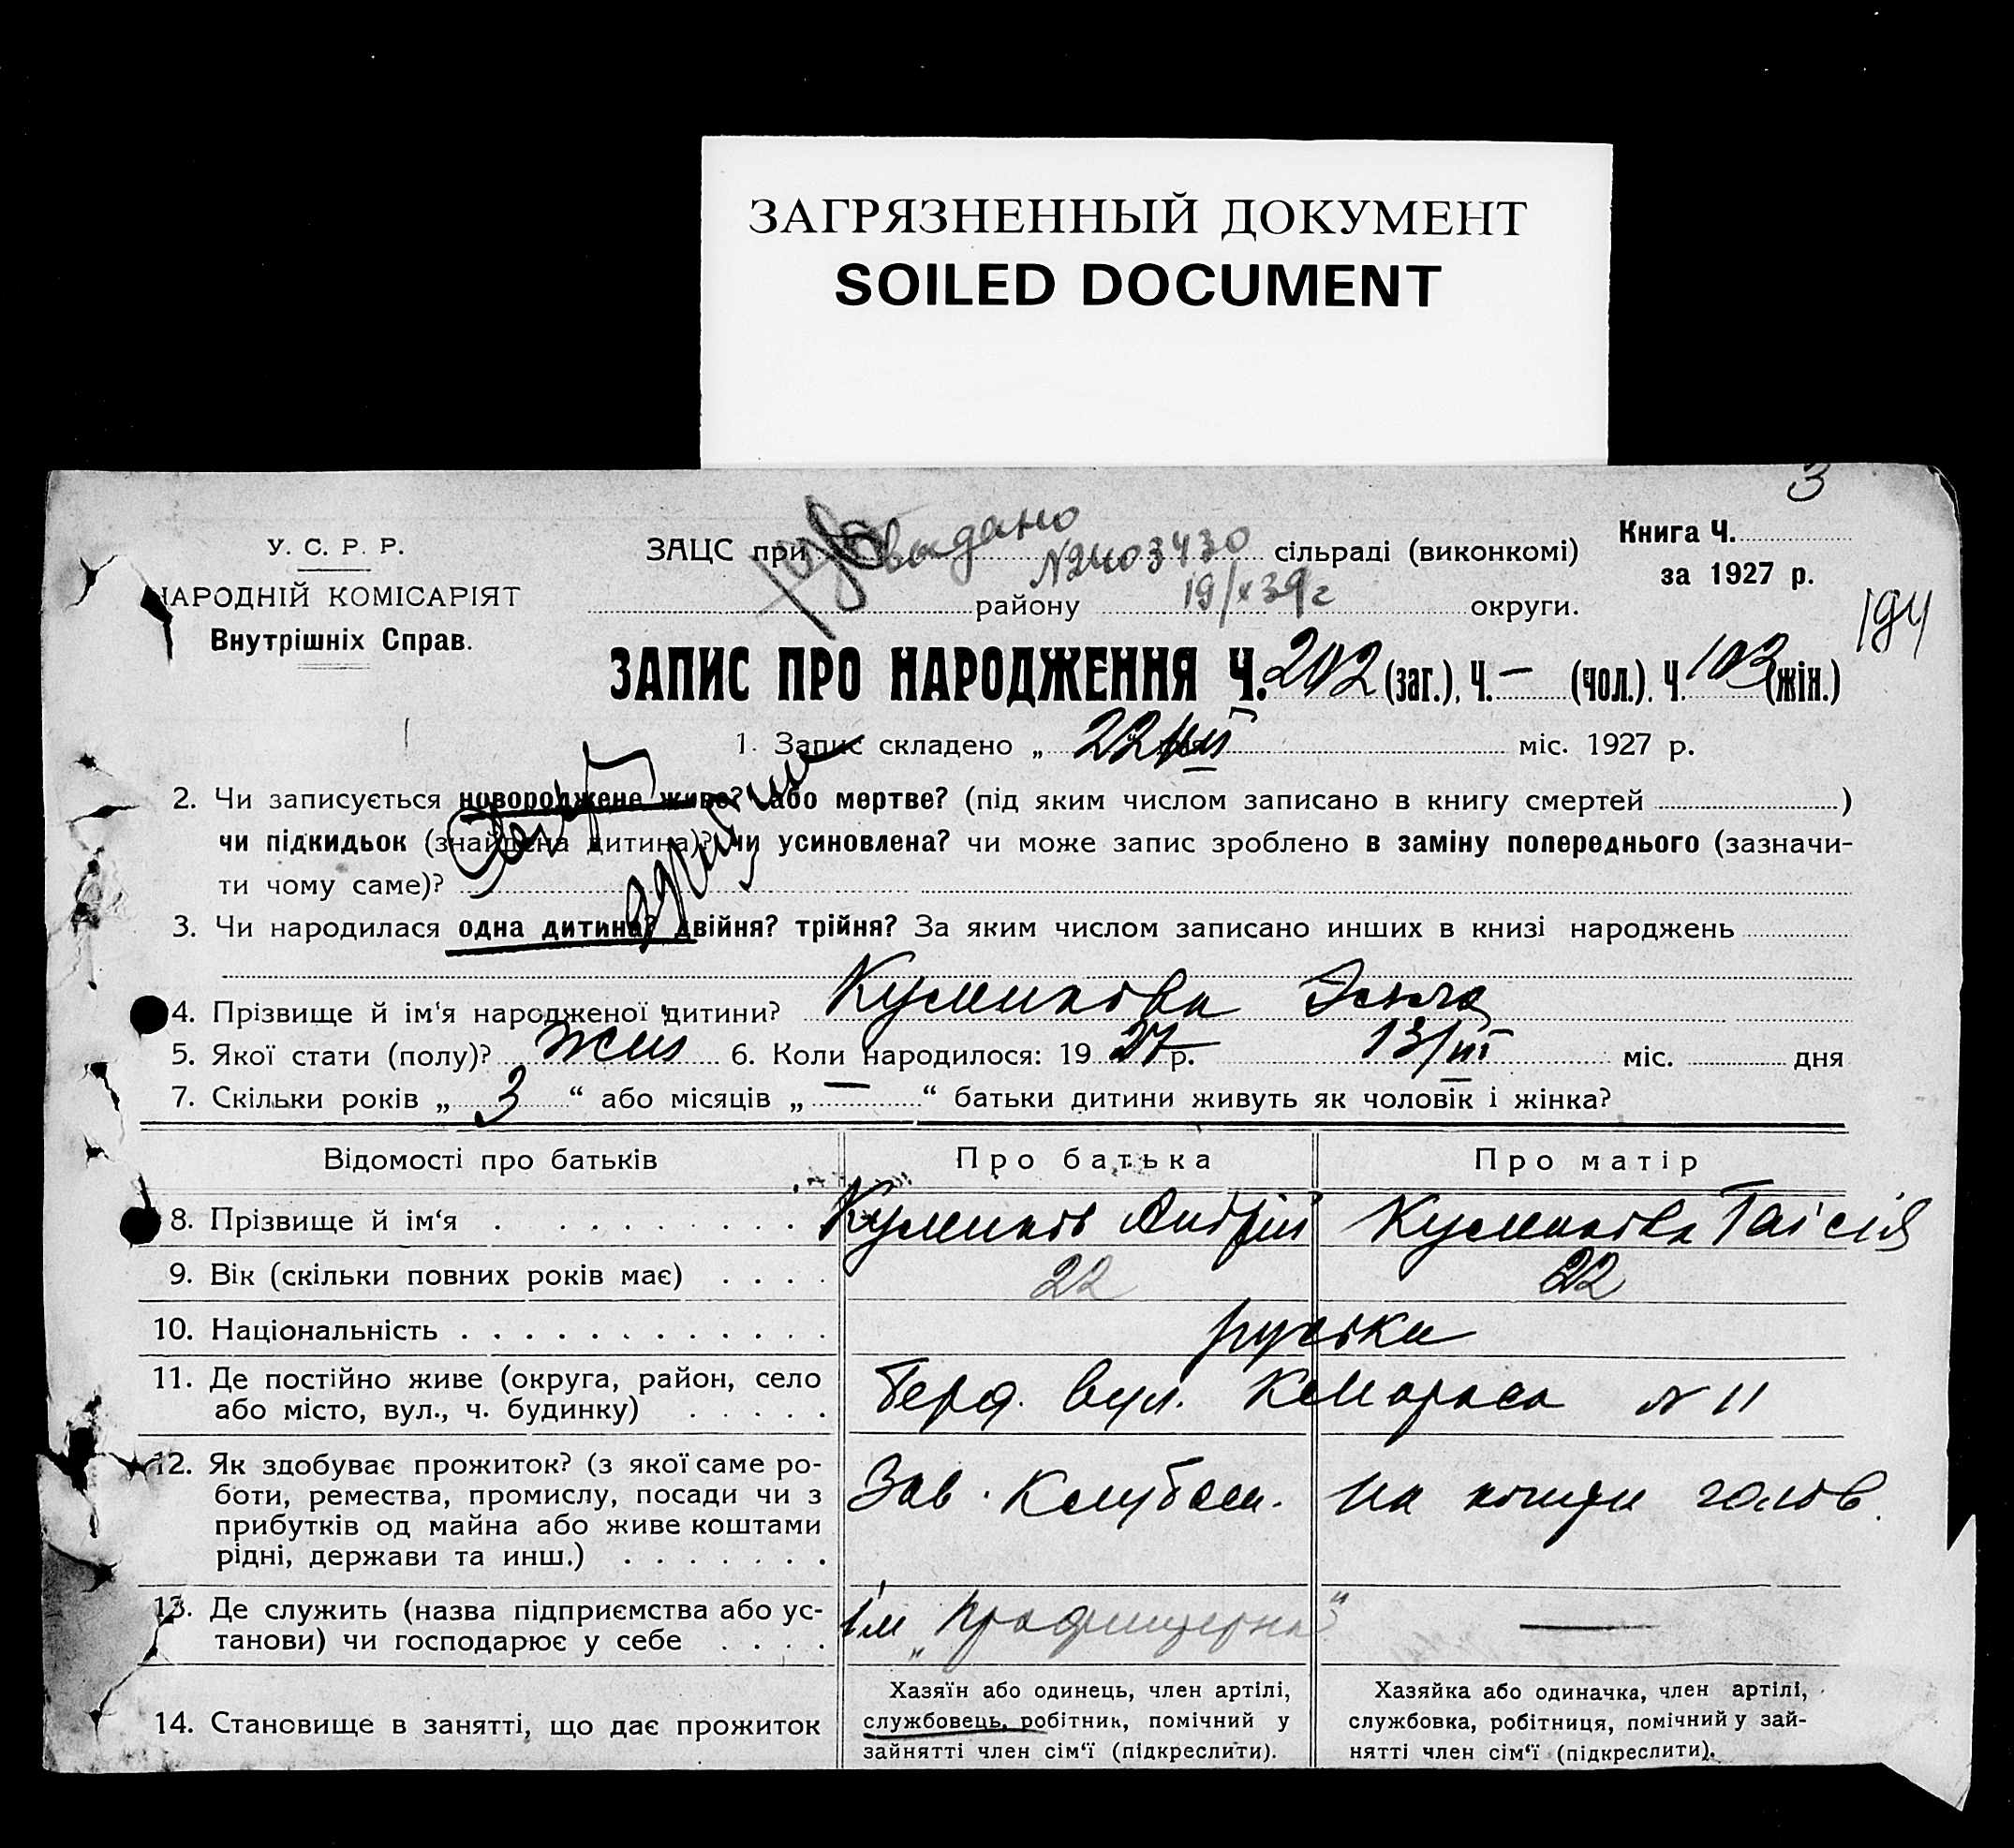 ЗАГРЯЗНЕННЫЙ ДОКУМЕНТ
SOILED DOCUMENT
3
У. С. Р. Р.
НАРОДНІЙ КОМІСАРІЯТ
Внутрішніх Справ.
ЗАЦС при выдано №2403430 сільраді (виконкомі)
району 19/X 39 г округи.
Книга Ч.
за 1927 р.
194
ЗАПИС ПРО НАРОДЖЕННЯ Ч. 202 (заг.), Ч. — (чол.). Ч. 103 (жін.)
1. Запис складено „ 22/III міс. 1927 р.
2. Чи записується новороджене живе? або мертве? (під яким числом записано в книгу смертей )
чи підкидьок (знайдена дитина)? чи усиновлена? чи може запис зроблено в заміну попереднього (зазначи-
ти чому саме)?
3. Чи народилася одна дитина? двійня? трійня? За яким числом записано инших в книзі народжень
4. Прізвище й ім'я народженої дитини?
5. Якої стати (полу)? жін 6. Коли народилося: 19 27 р. 13/III міс. дня
7. Скільки років „ 3 “ або місяців „ — “ батьки дитини живуть як чоловік і жінка?
Відомості про батьків Про батька Про матір
8. Прізвище й ім'я Андрій Таісія
9. Вік (скільки повних років має) 22 22
10. Національність руські
11. Де постійно живе (округа, район, село
або місто, вул., ч. будинку)
Берд. вул. К Маркса № 11
12. Як здобуває прожиток? (з якої саме ро-
боти, ремества, промислу, посади чи з
прибутків од майна або живе коштами
рідні, держави та инш.)
Зав. Клубом. на кошти голов.
13. Де служить (назва підприємства або ус-
танови) чи господарює у себе
ім —
14. Становище в занятті, що дає прожиток
Хазяїн або одинець, член артілі,
службовець, робітник, помічний у
зайнятті член сім'ї (підкреслити).
Хазяйка або одиначка, член артілі,
службовка, робітниця, помічний у зай-
нятті член сім'ї (підкреслити).